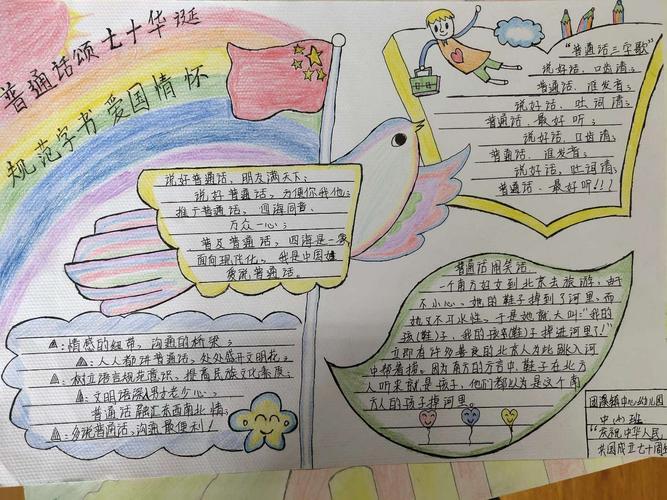 普通话颂七十华诞
规范字书爱国情怀
说好普通话，朋友满天下；
说好普通话，方便你我他；
推广普通话，四海同音、
万众一心；
普及普通话，四海是一家
面向现代化，我是中国娃
爱说普通话。
"普通话三字歌"
说好话、口齿清；
普通话、准发音；
说好话、吐词清；
普通话、最好听；
说好话、口齿清；
普通话、准发音；
说好话、吐词清；
普通话、最好听!!!
△：情感的纽带，沟通的桥梁；
△：人人都讲普通话，处处盛开文明花；
△：树立语言规范意识，提高民族文化素质；
△：文明语深入男女老少心，
普通话融汇东西南北情；
△：多说普通话，沟通最便利！
普通话闹笑话
一个南方妇女到北京去旅游，由于
不小心，她的鞋子掉到了河里，而
她又不习水性。于是她就大叫："我的
孩(鞋)子，我的孩(鞋)子掉进河里了!"
立即有许多善良的北京人为此跳入河
中帮着捞。因为南方的方言中，鞋子在北方
人听来就是孩子，他们都以为是这个南
方人的孩子掉河里。
团溪镇中心幼儿园
中(4)班
"庆祝中华人民
共国成立七十周